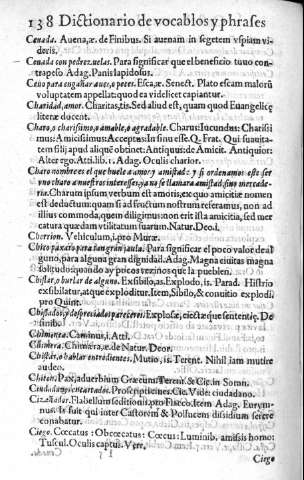 138 Dictionario de vocablos y phrases
Cenada. Auena,æ. de Finibus. Si auenam in segetem vspiam videris.
Cenada con pedrezuelas. Para significar que el beneficio tuuo contrapeso Adag. Panis lapidosus.
Ceuo para engañar aues, o peces. Esca,æ. Senect. Plato escam malorũ
voluptatem appellat, quod ea videlicet capiantur.
Charidad, amor. Charitas, tis. Sed aliud est, quam quod Euangelicę
literæ ducent.
Charo, o charisimo, o amable, o agradable. Charus: Iucundus: Charisimus:
Amicissimus: Acceptus: In sinu est. Q. Frat. Qui suauitatem
sili apud alique obtinet: Antiquit: de Amicit. Antiquior:
Alter ego. Atti. lib. 1. Adag. Oculis charior.
Charo nombre es el que huele a amor y amistad: y si
vno charo a nuestros interesses, ya no se llamara amistad, sino mercaderia.
Charum ipsum verbum est amoris, ex quo amicitiæ nomen
est deductum: quam si ad fructum nostrum referamus, non ad
illius commoda, quem diligimus: non erit ista amicitia, sed mercatura
quædam vtilitatum suarum. Natur. Deo. 1.
Cherrion. Vehiculum, i. pro Muræ.
Chico paxaro para tan gran jaula. Para significar el poco valor de alguno,
para alguna gran dignidad. Adag. Magna ciuitas magna
solitudo: quando ay pocos vezinos que la pueblen.
Chiflar, o burlar de alguno. Exsibilo, as. Explodo, is. Parad. Histrio
exsibilatur, atque exploditur. Item, Sibilo, & conuitio explodi.
pro Quint.
Chiflados, y despreciados parecieres. Explosæ, eiectæque sententię. De
finib.
Chimenea. Caminus, i. Atti.
Chimera. Chimæra, æ. de Natur. Deor.
Chistar, o hablar entredientes. Mutio, is. Terent. Nihil iam mutire
audeo.
Chiton. Pax, aduerbium Græcum. Terent. & Cic. in Somn.
Ciudadanos encartados. Proscripti ciues. Cic. Vide: ciudadano.
Cizañador. Flabellum seditionis, pro Flacco. Item Adag. Eurymnus.
Is fuit qui inter Castorem & Pollucem dissidium serere
conabatur.
Ciego. Cœcatus: Obcœcatus: Cœcus: Luminib. amissis homo:
Tuscul. Oculis captus. Verr.
Ciego